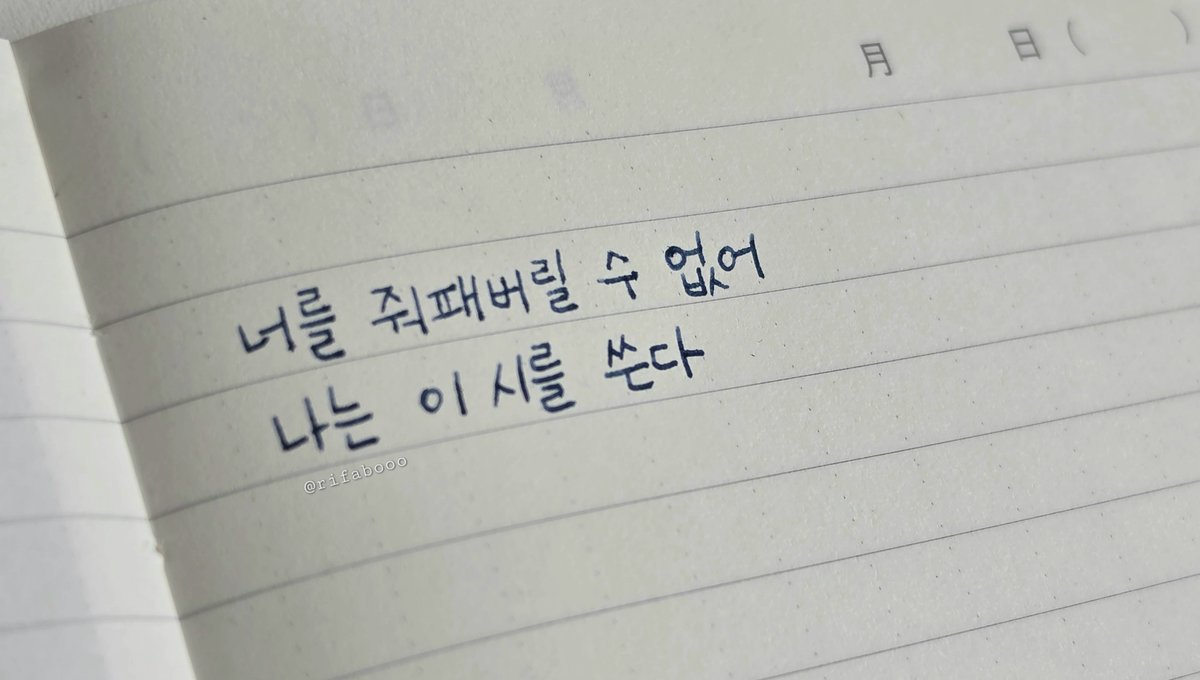 月 日 ( )
너를 줘패버릴 수 없어
나는 이 시를 쓴다
@rifabooo